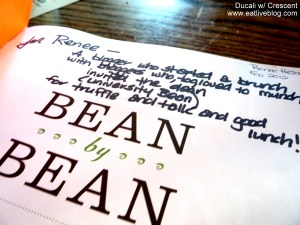 Ducali w/ Crescent
www.eatliveblog.com
for Renee —
A blogger who started a brunch
with bloggers who loved to munch
invited the dean
(University Bean)
for truffle and talk and good
lunch!
BEAN
by
BEAN